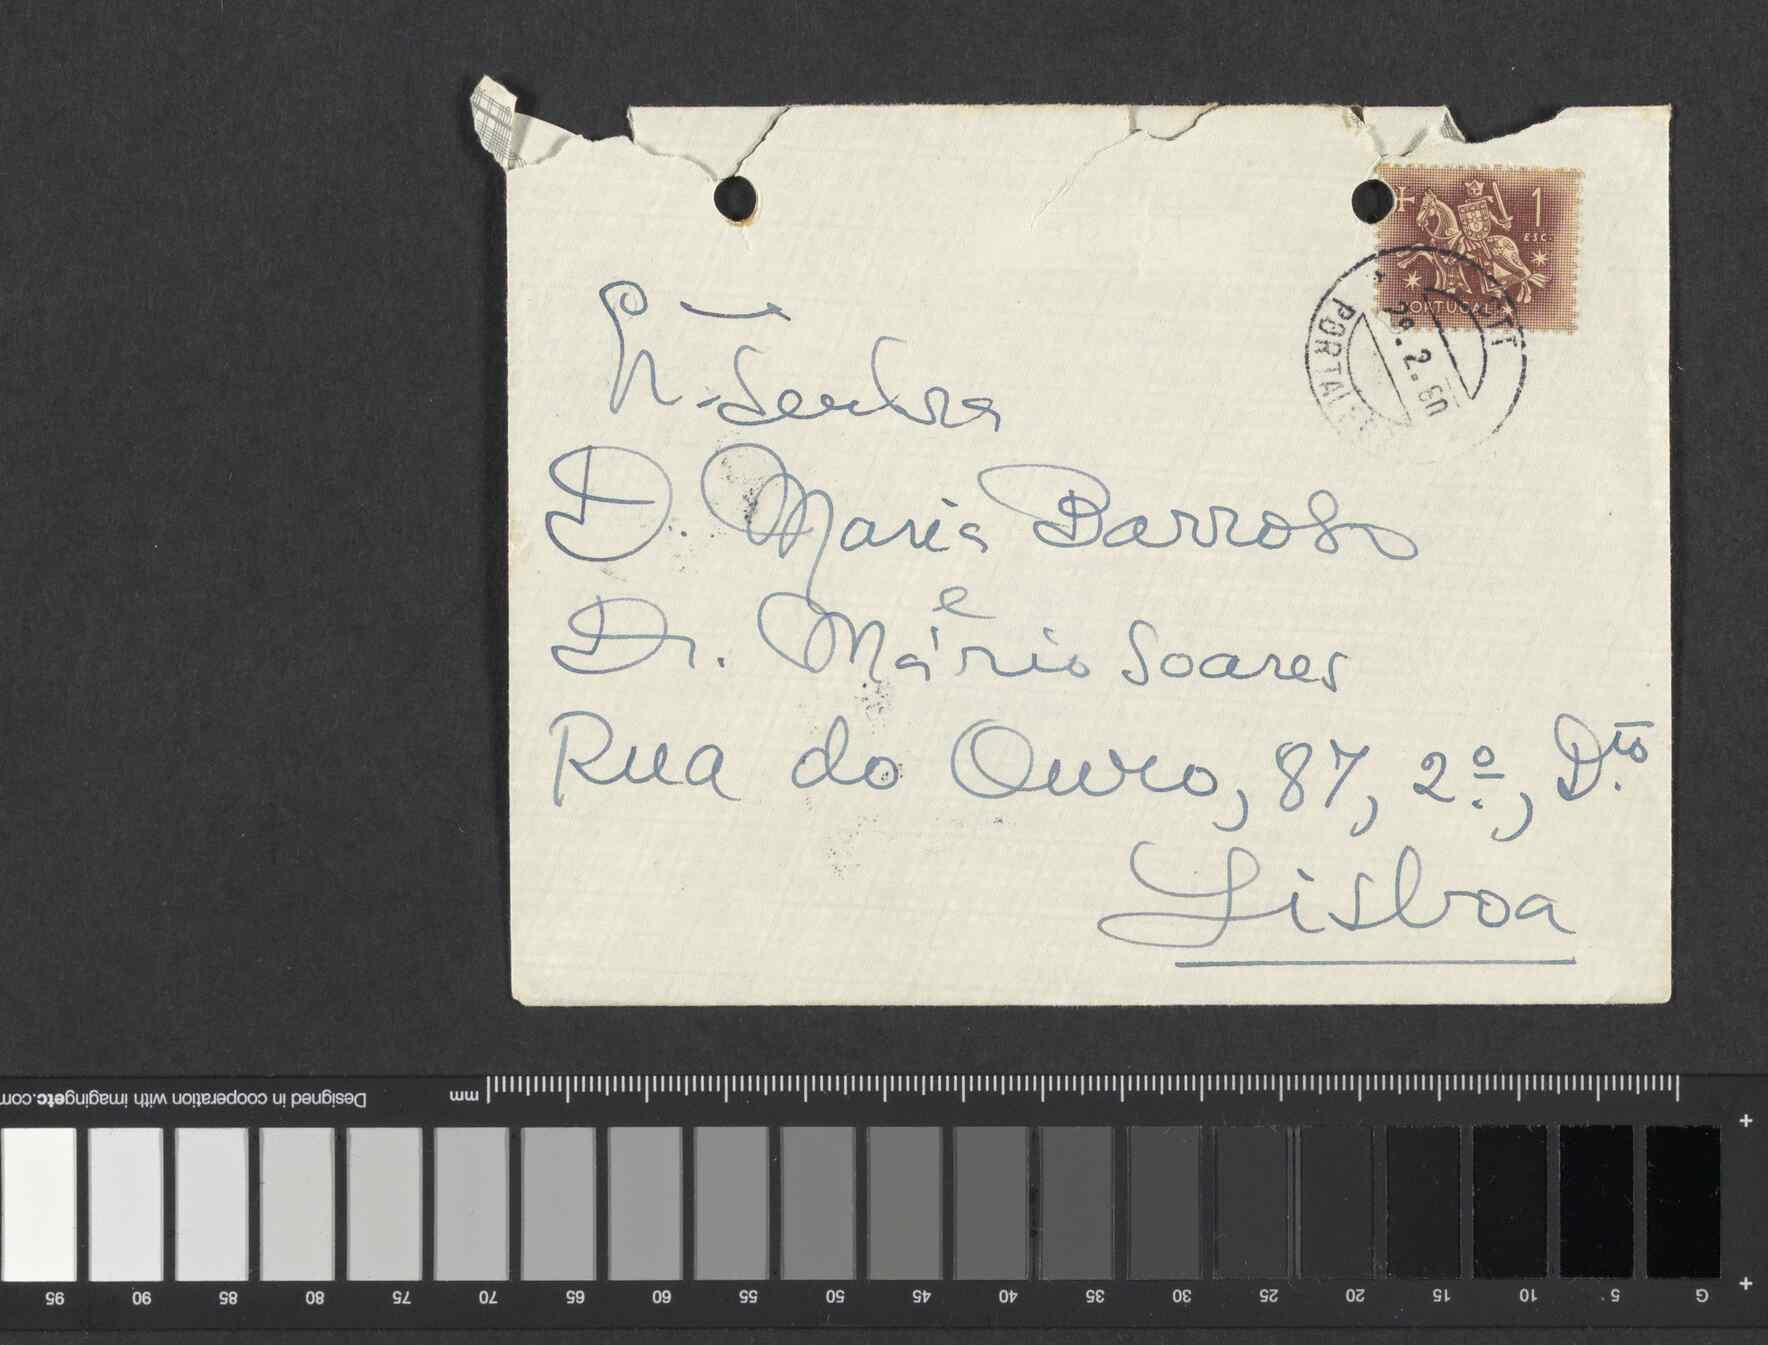 1
ESC.
PORTUGAL
CTT
29.2.60
D. Maria Barroso
e
Dr. Mário Soares
Rua do Ouro, 87, 2º, Dto
Lisboa
mm
Designed in cooperation with imagingetc.com
95 90 85 80 75 70 65 60 55 50 45 40 35 30 25 20 15 10 5 G